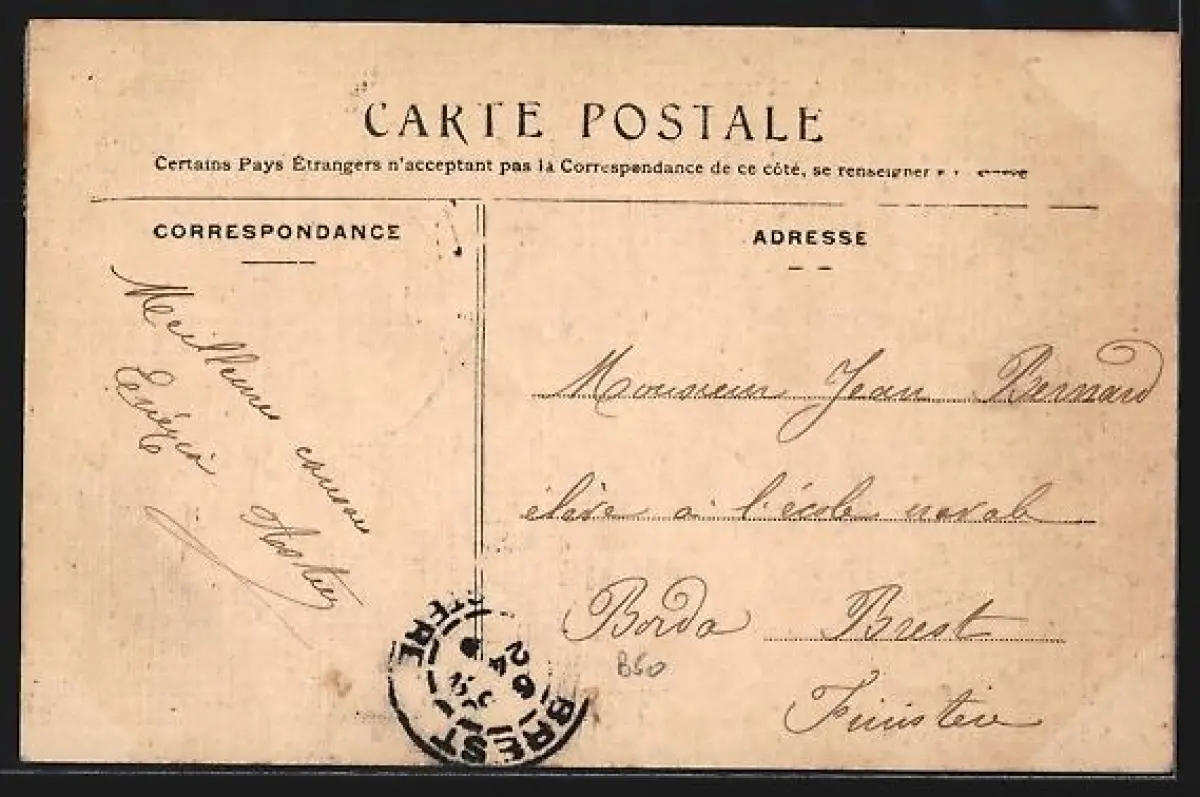 CARTE POSTALE
Certains Pays Étrangers n'acceptant pas la Correspondance de ce côté, se renseigner
CORRESPONDANCE
Meilleures causeries
ADRESSE
Monsieur Jean Bernard
élève à l'école navale
Borda Brest
Finistère
B50
BREST